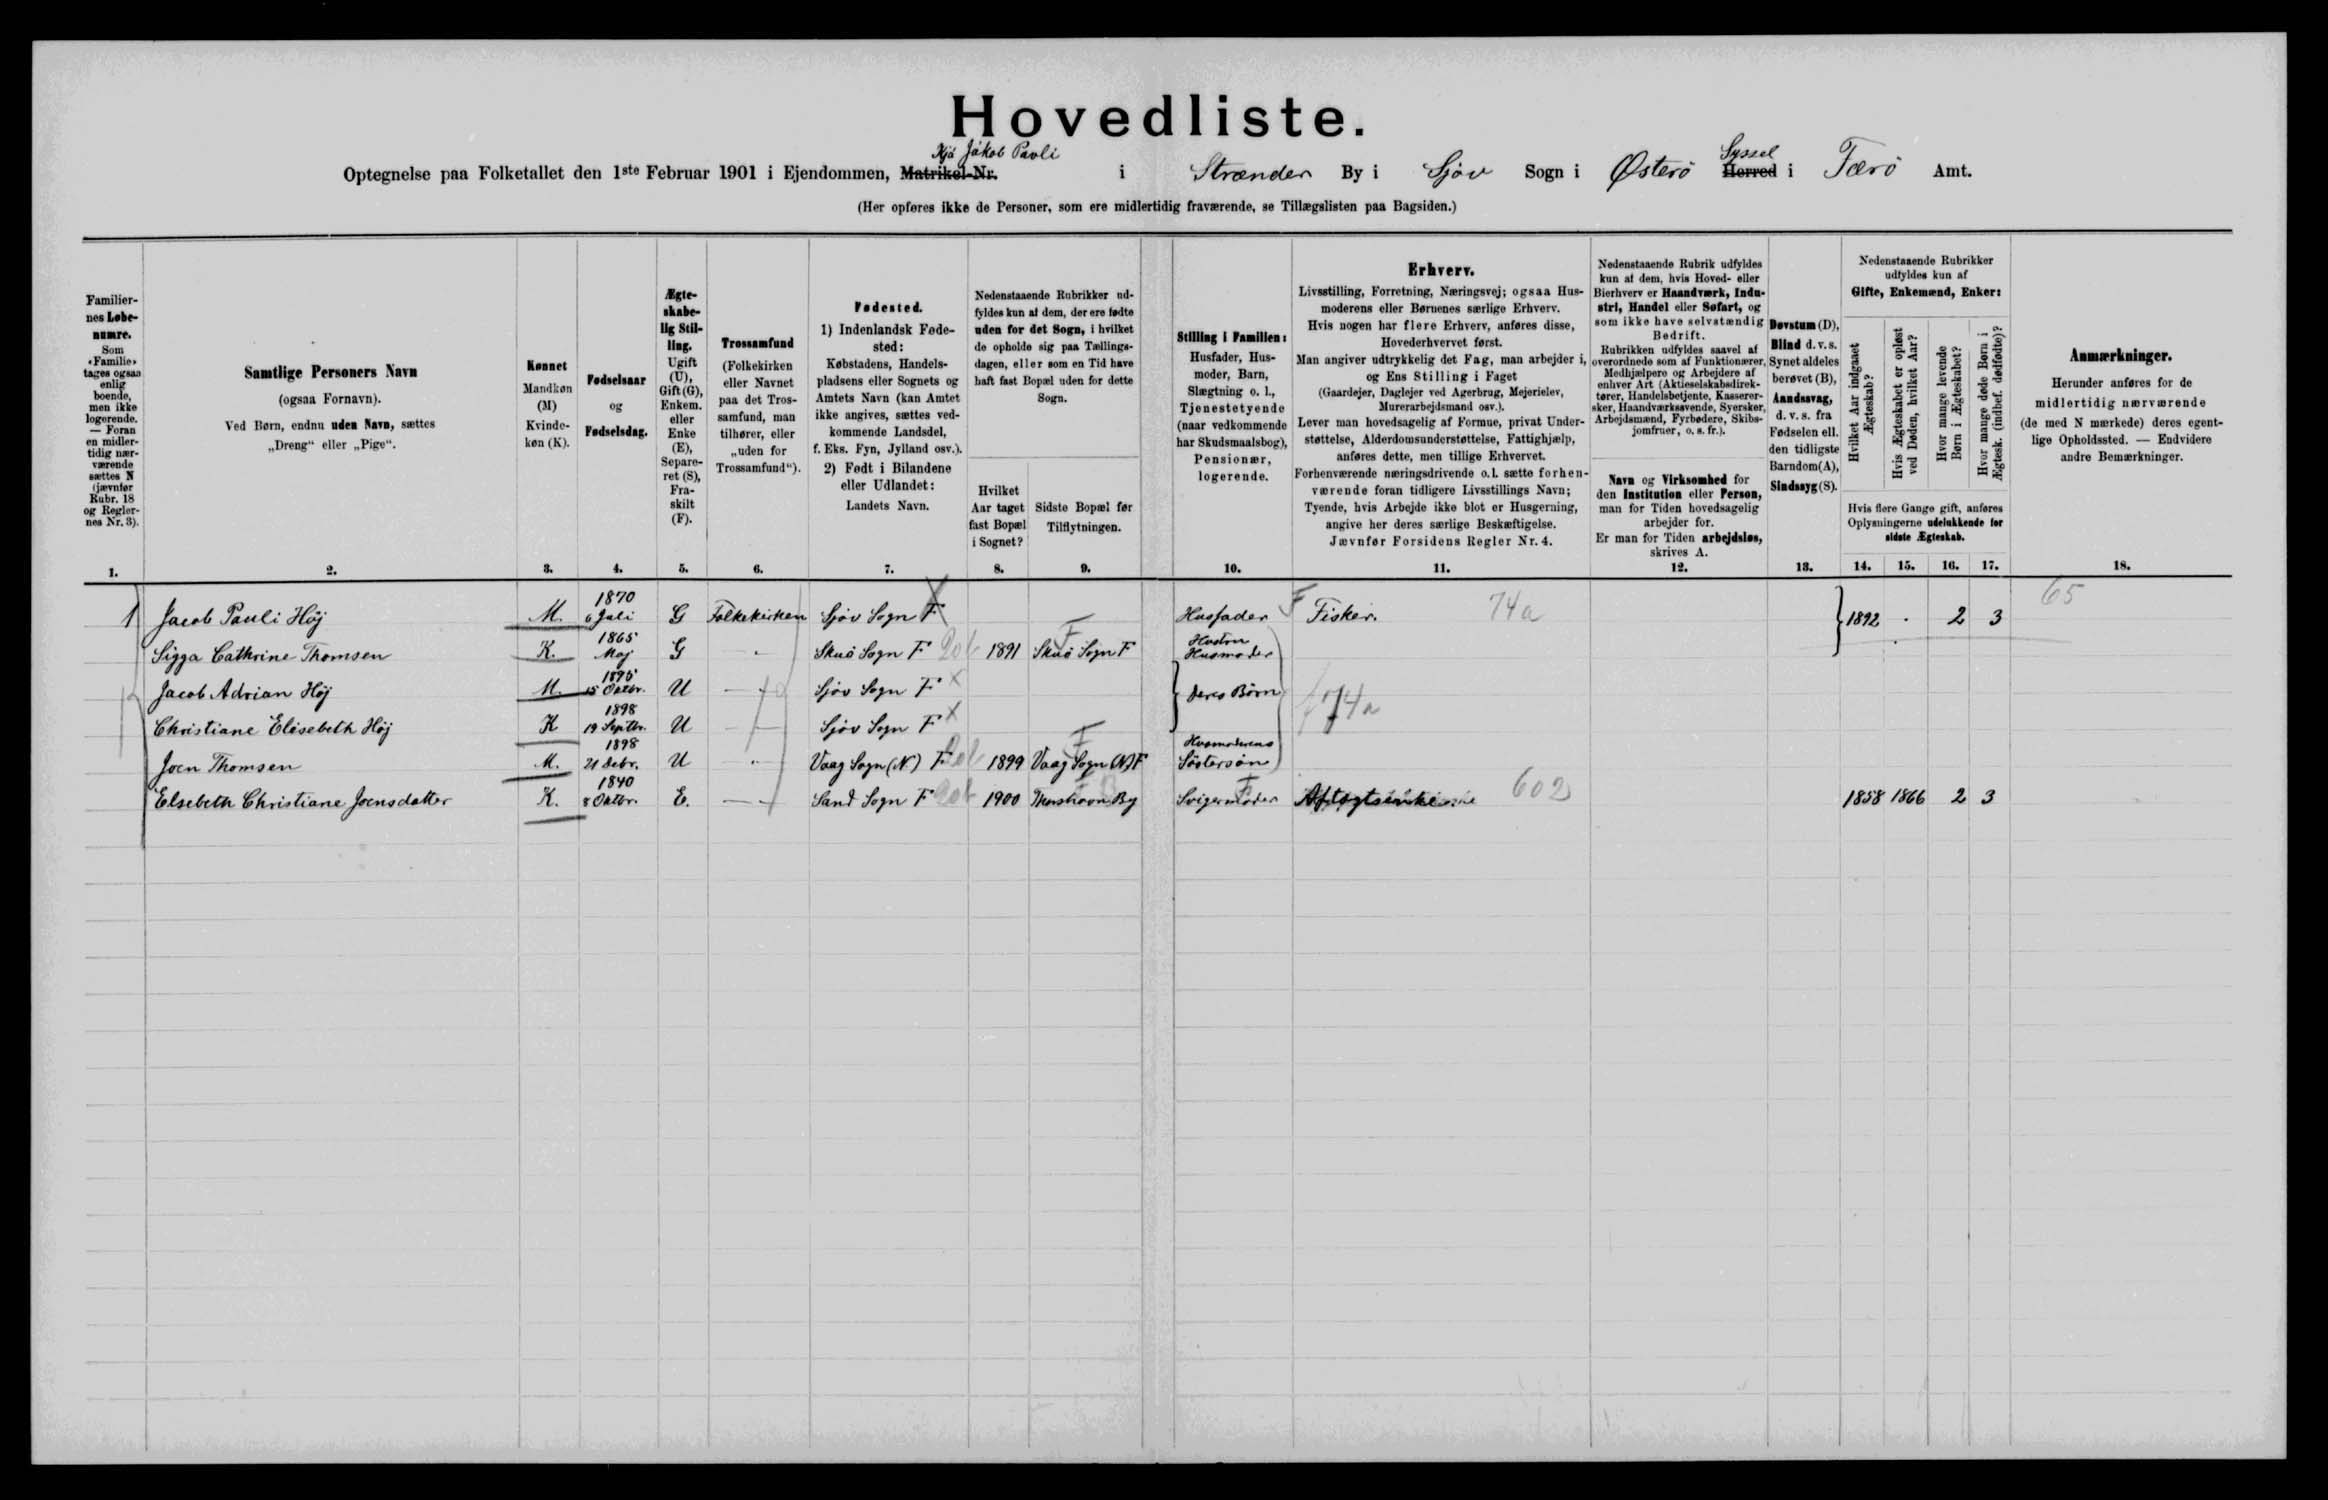 Hovedliste.
Hjá Jákob Pauli
Optegnelse paa Folketallet den 1ste Februar 1901 i Ejendommen, Matrikel-Nr. i Strænder By i Sjóv Sogn i Østerö Herred i Færö Amt.
Syssel
(Her opføres ikke de Personer, som ere midlertidig fraværende, se Tillægslisten paa Bagsiden.)
Familier-
nes Løbe-
numre.
Som
«Familie»
tages ogsaa
enlig
boende,
men ikke
logerende.
— Foran
en midler-
tidig nær-
værende
sættes N
(jævnfør
Rubr. 18
og Regler-
nes Nr. 3).
1.
Samtlige Personers Navn
(ogsaa Fornavn).
Ved Børn, endnu uden Navn, sættes
„Dreng“ eller „Pige“.
2.
Kønnet
Mandkøn
(M)
Kvinde-
køn (K).
3.
Fødselsaar
og
Fødselsdag.
4.
Ægte-
skabe-
lig Stil-
ling.
Ugift
(U),
Gift (G),
Enkem.
eller
Enke
(E),
Separe-
ret (S),
Fra-
skilt
(F).
5.
Trossamfund
(Folkekirken
eller Navnet
paa det Tros-
samfund, man
tilhører, eller
„uden for
Trossamfund“).
6.
Fødested.
1) Indenlandsk Føde-
sted:
Købstadens, Handels-
pladsens eller Sognets og
Amtets Navn (kan Amtet
ikke angives, sættes ved-
kommende Landsdel,
f. Eks. Fyn, Jylland osv.).
2) Født i Bilandene
eller Udlandet:
Landets Navn.
7.
Nedenstaaende Rubrikker ud-
fyldes kun af dem, der ere fødte
uden for det Sogn, i hvilket
de opholde sig paa Tællings-
dagen, eller som en Tid have
haft fast Bopæl uden for dette
Sogn.
Hvilket
Aar taget
fast Bopæl
i Sognet?
8.
Sidste Bopæl før
Tilflytningen.
9.
Stilling i Familien:
Husfader, Hus-
moder, Barn,
Slægtning o. l.,
Tjenestetyende
(naar vedkommende
har Skudsmaalsbog),
Pensionær,
logerende.
10.
Erhverv.
Livsstilling, Forretning, Næringsvej; ogsaa Hus-
moderens eller Børnenes særlige Erhverv.
Hvis nogen har flere Erhverv, anføres disse,
Hovederhvervet først.
Man angiver udtrykkelig det Fag, man arbejder i,
og Ens Stilling i Faget
(Gaardejer, Daglejer ved Agerbrug, Mejerielev,
Murerarbejdsmand osv.).
Lever man hovedsagelig af Formue, privat Under-
støttelse, Alderdomsunderstøttelse, Fattighjælp,
anføres dette, men tillige Erhvervet.
Forhenværende næringsdrivende o. l. sætte forhen-
værende foran tidligere Livsstillings Navn;
Tyende, hvis Arbejde ikke blot er Husgerning,
angive her deres særlige Beskæftigelse.
Jævnfør Forsidens Regler Nr. 4.
11.
Nedenstaaende Rubrik udfyldes
kun af dem, hvis Hoved- eller
Bierhverv er Haandværk, Indu-
stri, Handel eller Søfart, og
som ikke have selvstændig
Bedrift.
Rubrikken udfyldes saavel af
overordnede som af Funktionærer,
Medhjælpere og Arbejdere af
enhver Art (Aktieselskabsdirek-
tører, Handelsbetjente, Kasserer-
sker, Haandværkssvende, Syersker,
Arbejdsmænd, Fyrbødere, Skibs-
jomfruer, o. s. fr.).
Navn og Virksomhed for
den Institution eller Person,
man for Tiden hovedsagelig
arbejder for.
Er man for Tiden arbejdsløs,
skrives A.
12.
Døvstum (D),
Blind d. v. s.
Synet aldeles
berøvet (B),
Aandssvag,
d. v. s. fra
Fødselen ell.
den tidligste
Barndom (A),
Sindssyg (S).
13.
Nedenstaaende Rubrikker
udfyldes kun af
Gifte, Enkemænd, Enker:
Hvilket Aar indgaaet
Ægteskab?
Hvis Ægteskabet er opløst
ved Døden, hvilket Aar?
Hvor mange levende
Børn i Ægteskabet?
Hvor mange døde Børn i
Ægtesk. (indbef. dødfødte)?
Hvis flere Gange gift, anføres
Oplysningerne udelukkende for
sidste Ægteskab.
14. 15. 16. 17.
Anmærkninger.
Herunder anføres for de
midlertidig nærværende
(de med N mærkede) deres egent-
lige Opholdssted. — Endvidere
andre Bemærkninger.
18.
1 Jacob Pauli Höj M. 1870 6 Juli G Folkekirken Sjóv Sogn F Husfader F Fisker. 74a 1892 . 2 3 65
Sigga Cathrine Thomsen K. 1865 Maj G — " — Skuö Sogn F 1891 Skuö Sogn F Hustru Husmoder
Jacob Adrian Höj M. 1895 15 Oktbr. U — " — Sjóv Sogn F Deres Börn
Christiane Elisebeth Höj K 1898 19 Septbr. U — " — Sjóv Sogn F 74a
Joen Thomsen M. 1898 21 Debr. U " Vaag Sogn (N) F 1899 Vaag Sogn (N) F Husmoderens Söstersön
Elsebeth Christiane Joensdatter K. 1840 8 Oktbr. E. — " — Sand Sogn F 1900 Thorshavn By Svigermoder Aftægtsenke 602 1858 1866 2 3